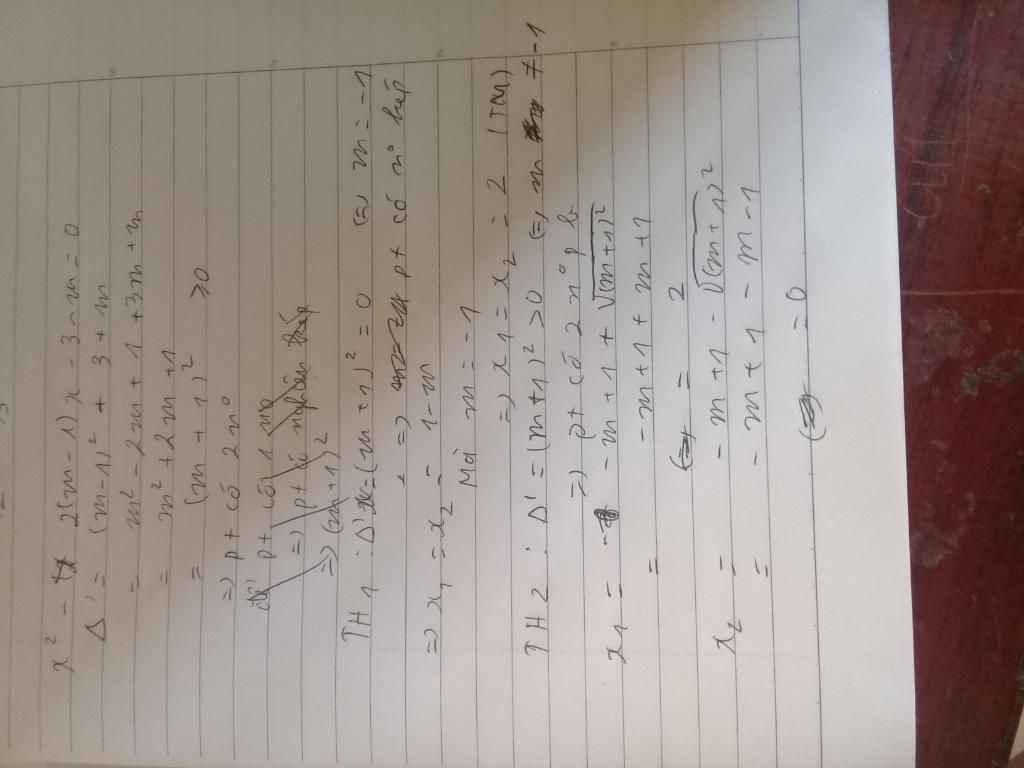 x² - 2(m-1)x - 3 - m = 0
Δ' = (m-1)² + 3 + m
= m² - 2m + 1 + 3m + m
= m² + 2m + 1
= (m+1)² ≥ 0
=) pt có 2 n⁰
pt có 1 no
=) pt có nghiệm kép
=) (m+1)²
TH1: Δ' = (m+1)² = 0 (=) m = -1
=) pt có n⁰ kép
=) x1 = x2 = 1-m
Mà m = -1
=) x1 = x2 = 2 (TM)
TH2: Δ' = (m+1)² > 0 (=) m ≠ -1
=) pt có 2 n⁰ pb
x1 = -m+1 + √(m+1)²
= -m+1 + m+1
= 2
x2 = -m+1 - √(m+1)²
= -m+1 - m-1
= 0